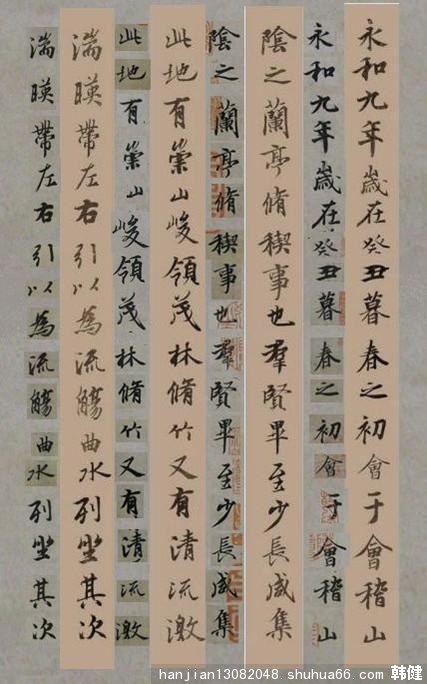 永和九年歲在癸丑暮春之初會于會稽山
永和九年歲在癸丑暮春之初會于會稽山
陰之蘭亭脩稧事也羣賢畢至少長咸集
陰之蘭亭脩稧事也羣賢畢至少長咸集
此地有崇山峻領茂林脩竹又有清流激
此地有崇山峻領茂林脩竹又有清流激
湍暎帶左右引以為流觴曲水列坐其次
湍暎帶左右引以為流觴曲水列坐其次
hanjian13082048.shuhua66.com 韩健